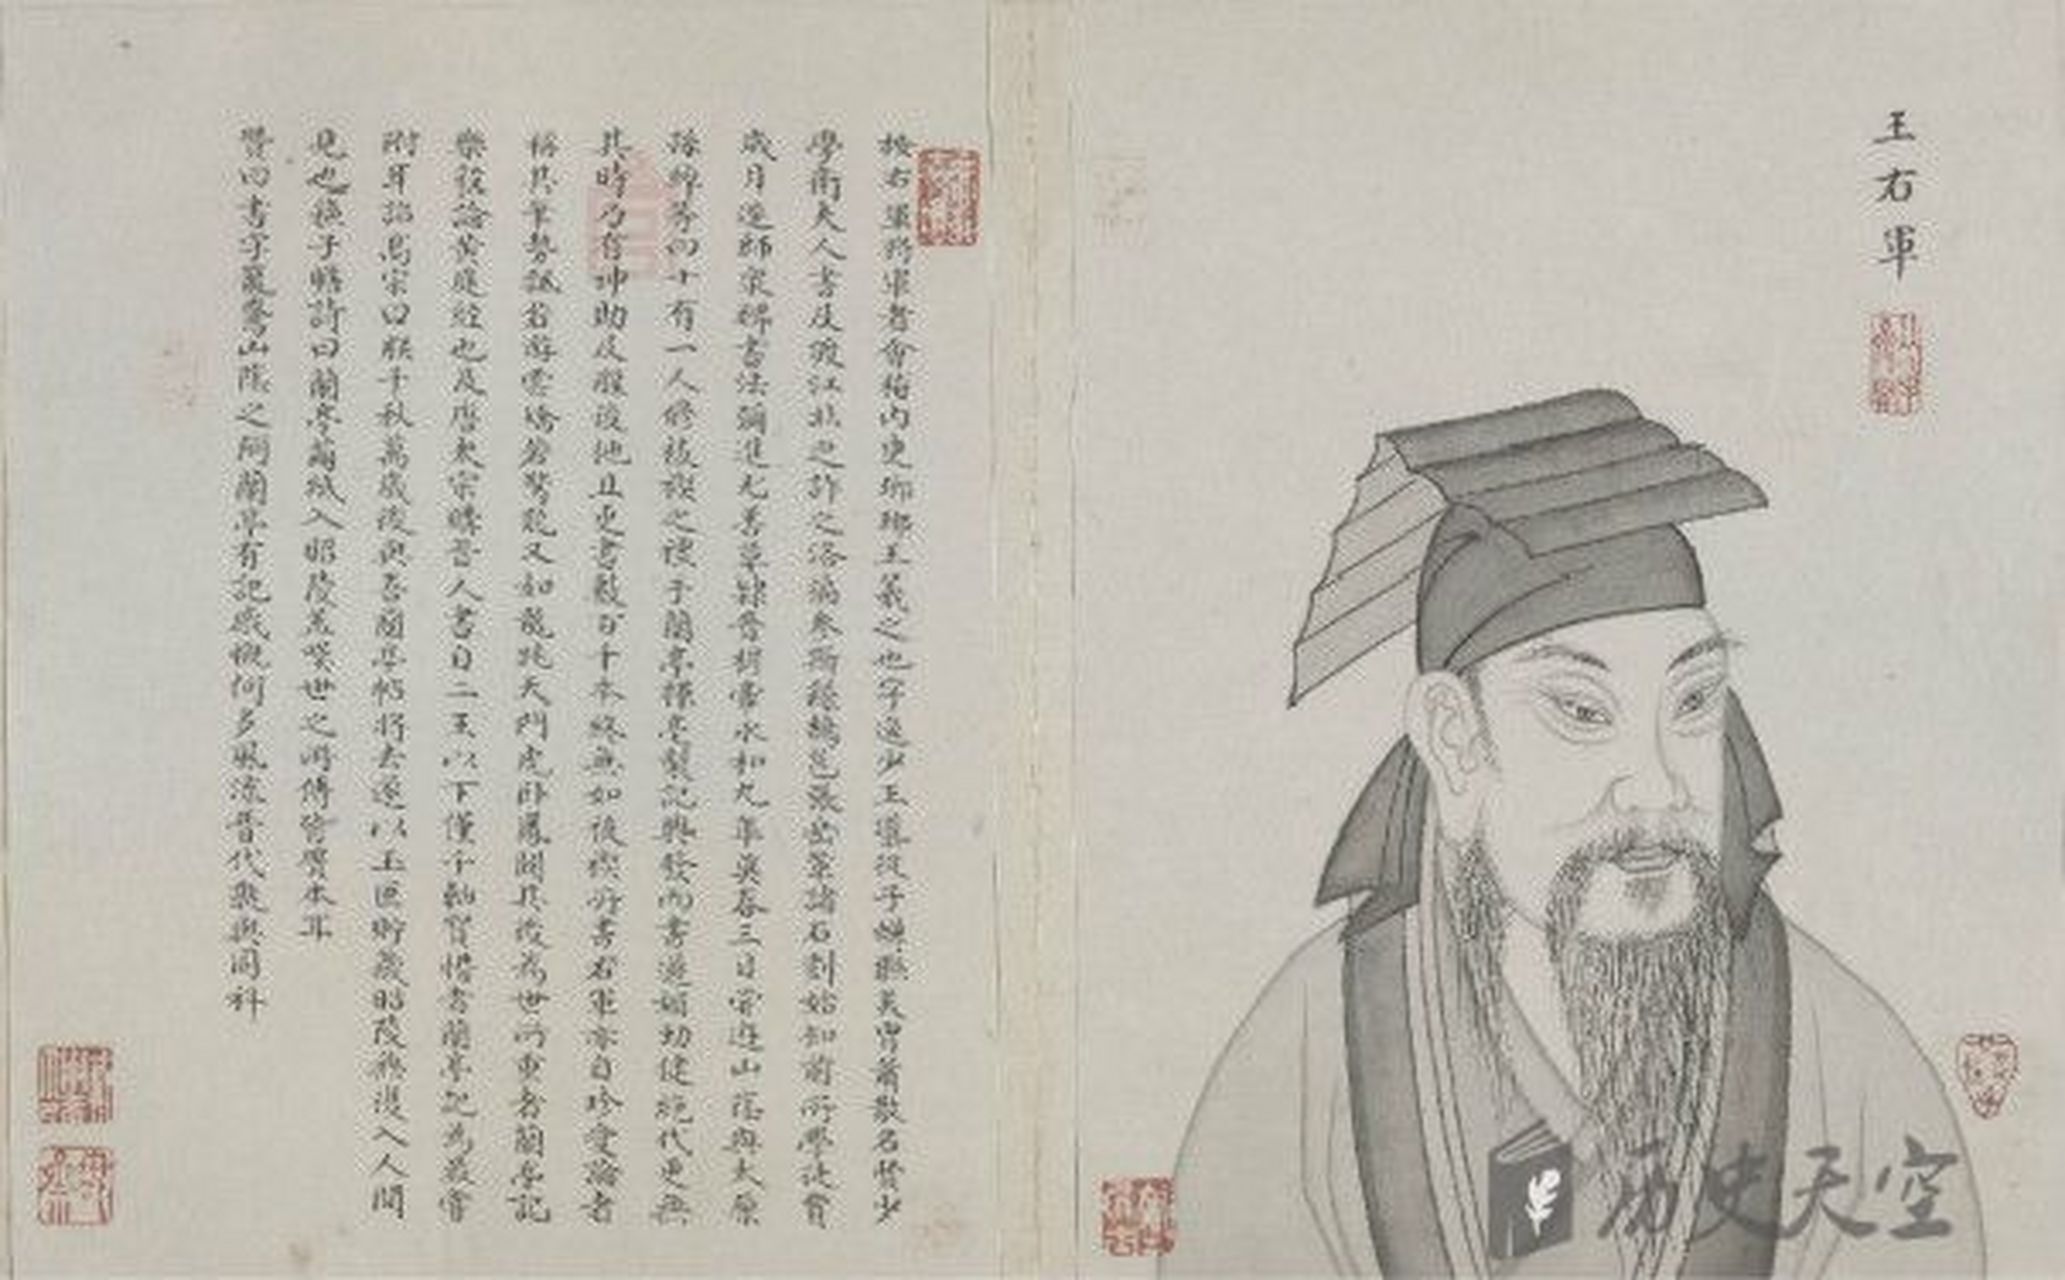 王右軍
按右軍將軍者會稽內史瑯琊王羲之也字逸少王導從子嫌縣美胄蕭散名賢少
學衛夫人書及渡江北之許之洛瀛參斯繇鵠邕張岳華諸石刻始知前所學徒費
歲月遂師眾碑書法彌進尤善草隸晉穆帝永和九年莫春三日嘗遊山陰與太原
孫綽等四十有一人修祓禊之禮于蘭亭揮毫製記興發而書遒媚勁健絕代更無
其時乃有神助及醒後他日更書數百千本終無如祓禊所書右軍亦自珍愛論者
稱其筆勢飄若游雲矯若驚龍又如龍跳天門虎臥鳳闕其後為世所重者蘭亭記
樂毅論黃庭經也及唐太宗購晉人書自二王以下僅千軸寶惜者蘭亭記為最嘗
附耳詔高宗曰朕千秋萬歲後與吾蘭亭帖將去遂以玉匣貯藏昭陵無復入人間
見也蘇子瞻詩曰蘭亭繭紙入昭陵蓋嘆世之所傳皆贗本耳
贊曰書字籠鵞山陰之阿蘭亭有記感慨何多風流晉代孰與同科
历史天空